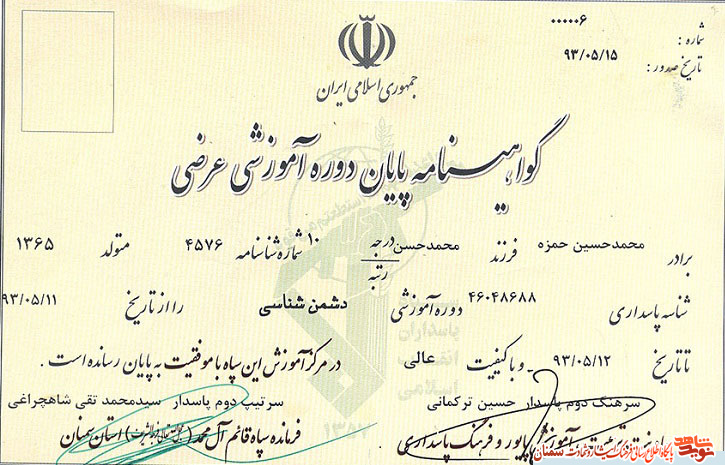 شماره : ۰۰۰۰۰۶
تاریخ صدور : ۹۳/۰۵/۱۵
جمهوری اسلامی ایران
گواهینامه پایان دوره آموزشی عرضی
برادر محمدحسین حمزه فرزند محمدحسن درجه/رتبه ۱۰ شماره شناسنامه ۴۵۷۶ متولد ۱۳۶۵
شناسه پاسداری ۴۶۰۴۸۶۸۸ دوره آموزشی دشمن شناسی را از تاریخ ۹۳/۰۵/۱۱
تا تاریخ ۹۳/۰۵/۱۲ و با کیفیت عالی در مرکز آموزش این سپاه با موفقیت به پایان رسانده است .
سرهنگ دوم پاسدار حسین ترکمانی
آموزش و فرهنگ پاسداری
سرتیپ دوم پاسدار سیدمحمد تقی شاهچراغی
فرمانده سپاه قائم آل محمد استان سمنان
پاسداران
انقلاب
اسلامی
نوید شاهد
سمنان